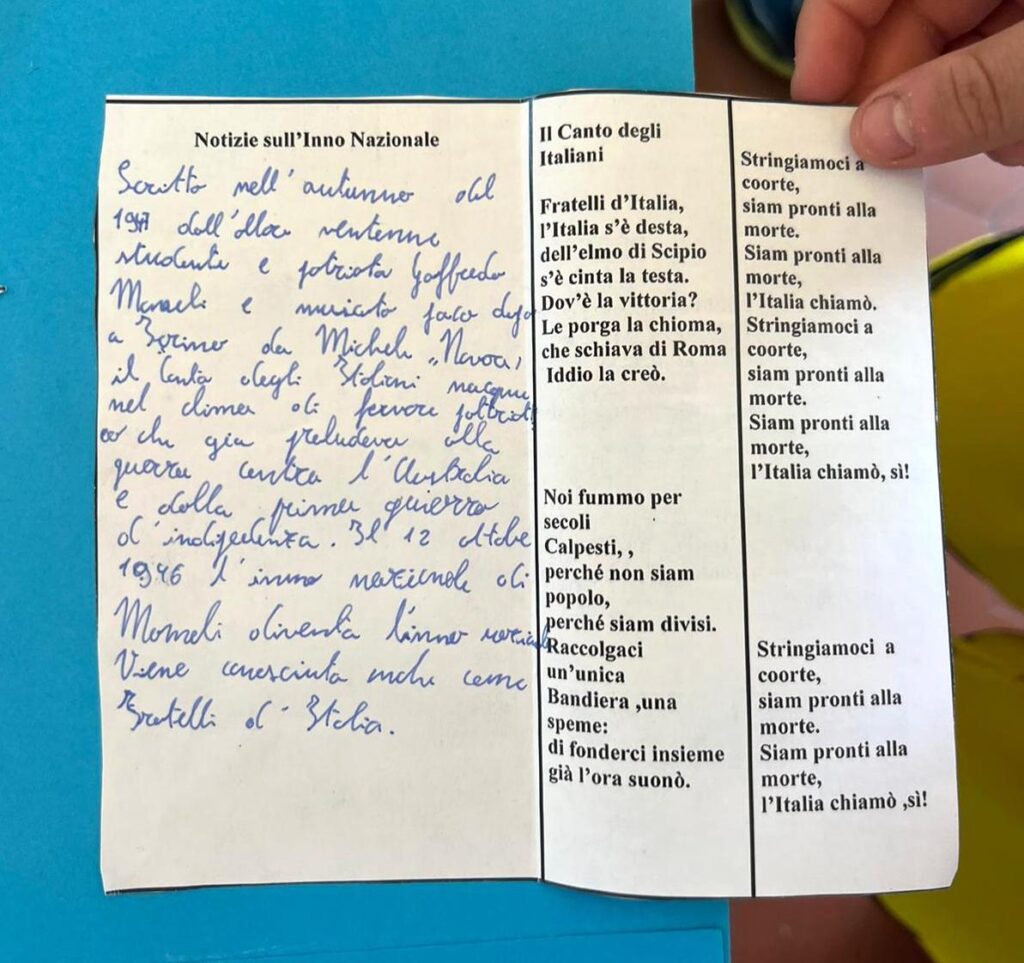 Notizie sull'Inno Nazionale
Scritto nell'autunno del
dall'allora ventenne
studente e patriota Goffredo
Mameli e musicato poco dopo
a Torino da Michele Novaro,
il Canto degli Italiani nacque
nel clima di fervore patriotti
co che già preludeva alla
guerra contro l'Australia
e dalla prima guierra
d'indipendenza. Il 12 ottobre
1946 l'inno nazionale di
Mameli diventa l'inno nazionale
Viene conosciuta anche come
Fratelli d'Italia.
Il Canto degli
Italiani
Fratelli d'Italia,
l'Italia s'è desta,
dell'elmo di Scipio
s'è cinta la testa.
Dov'è la vittoria?
Le porga la chioma,
che schiava di Roma
Iddio la creò.
Noi fummo per
secoli
Calpesti, ,
perché non siam
popolo,
perché siam divisi.
Raccolgaci
un'unica
Bandiera ,una
speme:
di fonderci insieme
già l'ora suonò.
Stringiamoci a
coorte,
siam pronti alla
morte.
Siam pronti alla
morte,
l'Italia chiamò.
Stringiamoci a
coorte,
siam pronti alla
morte.
Siam pronti alla
morte,
l'Italia chiamò, sì!
Stringiamoci a
coorte,
siam pronti alla
morte.
Siam pronti alla
morte,
l'Italia chiamò ,sì!